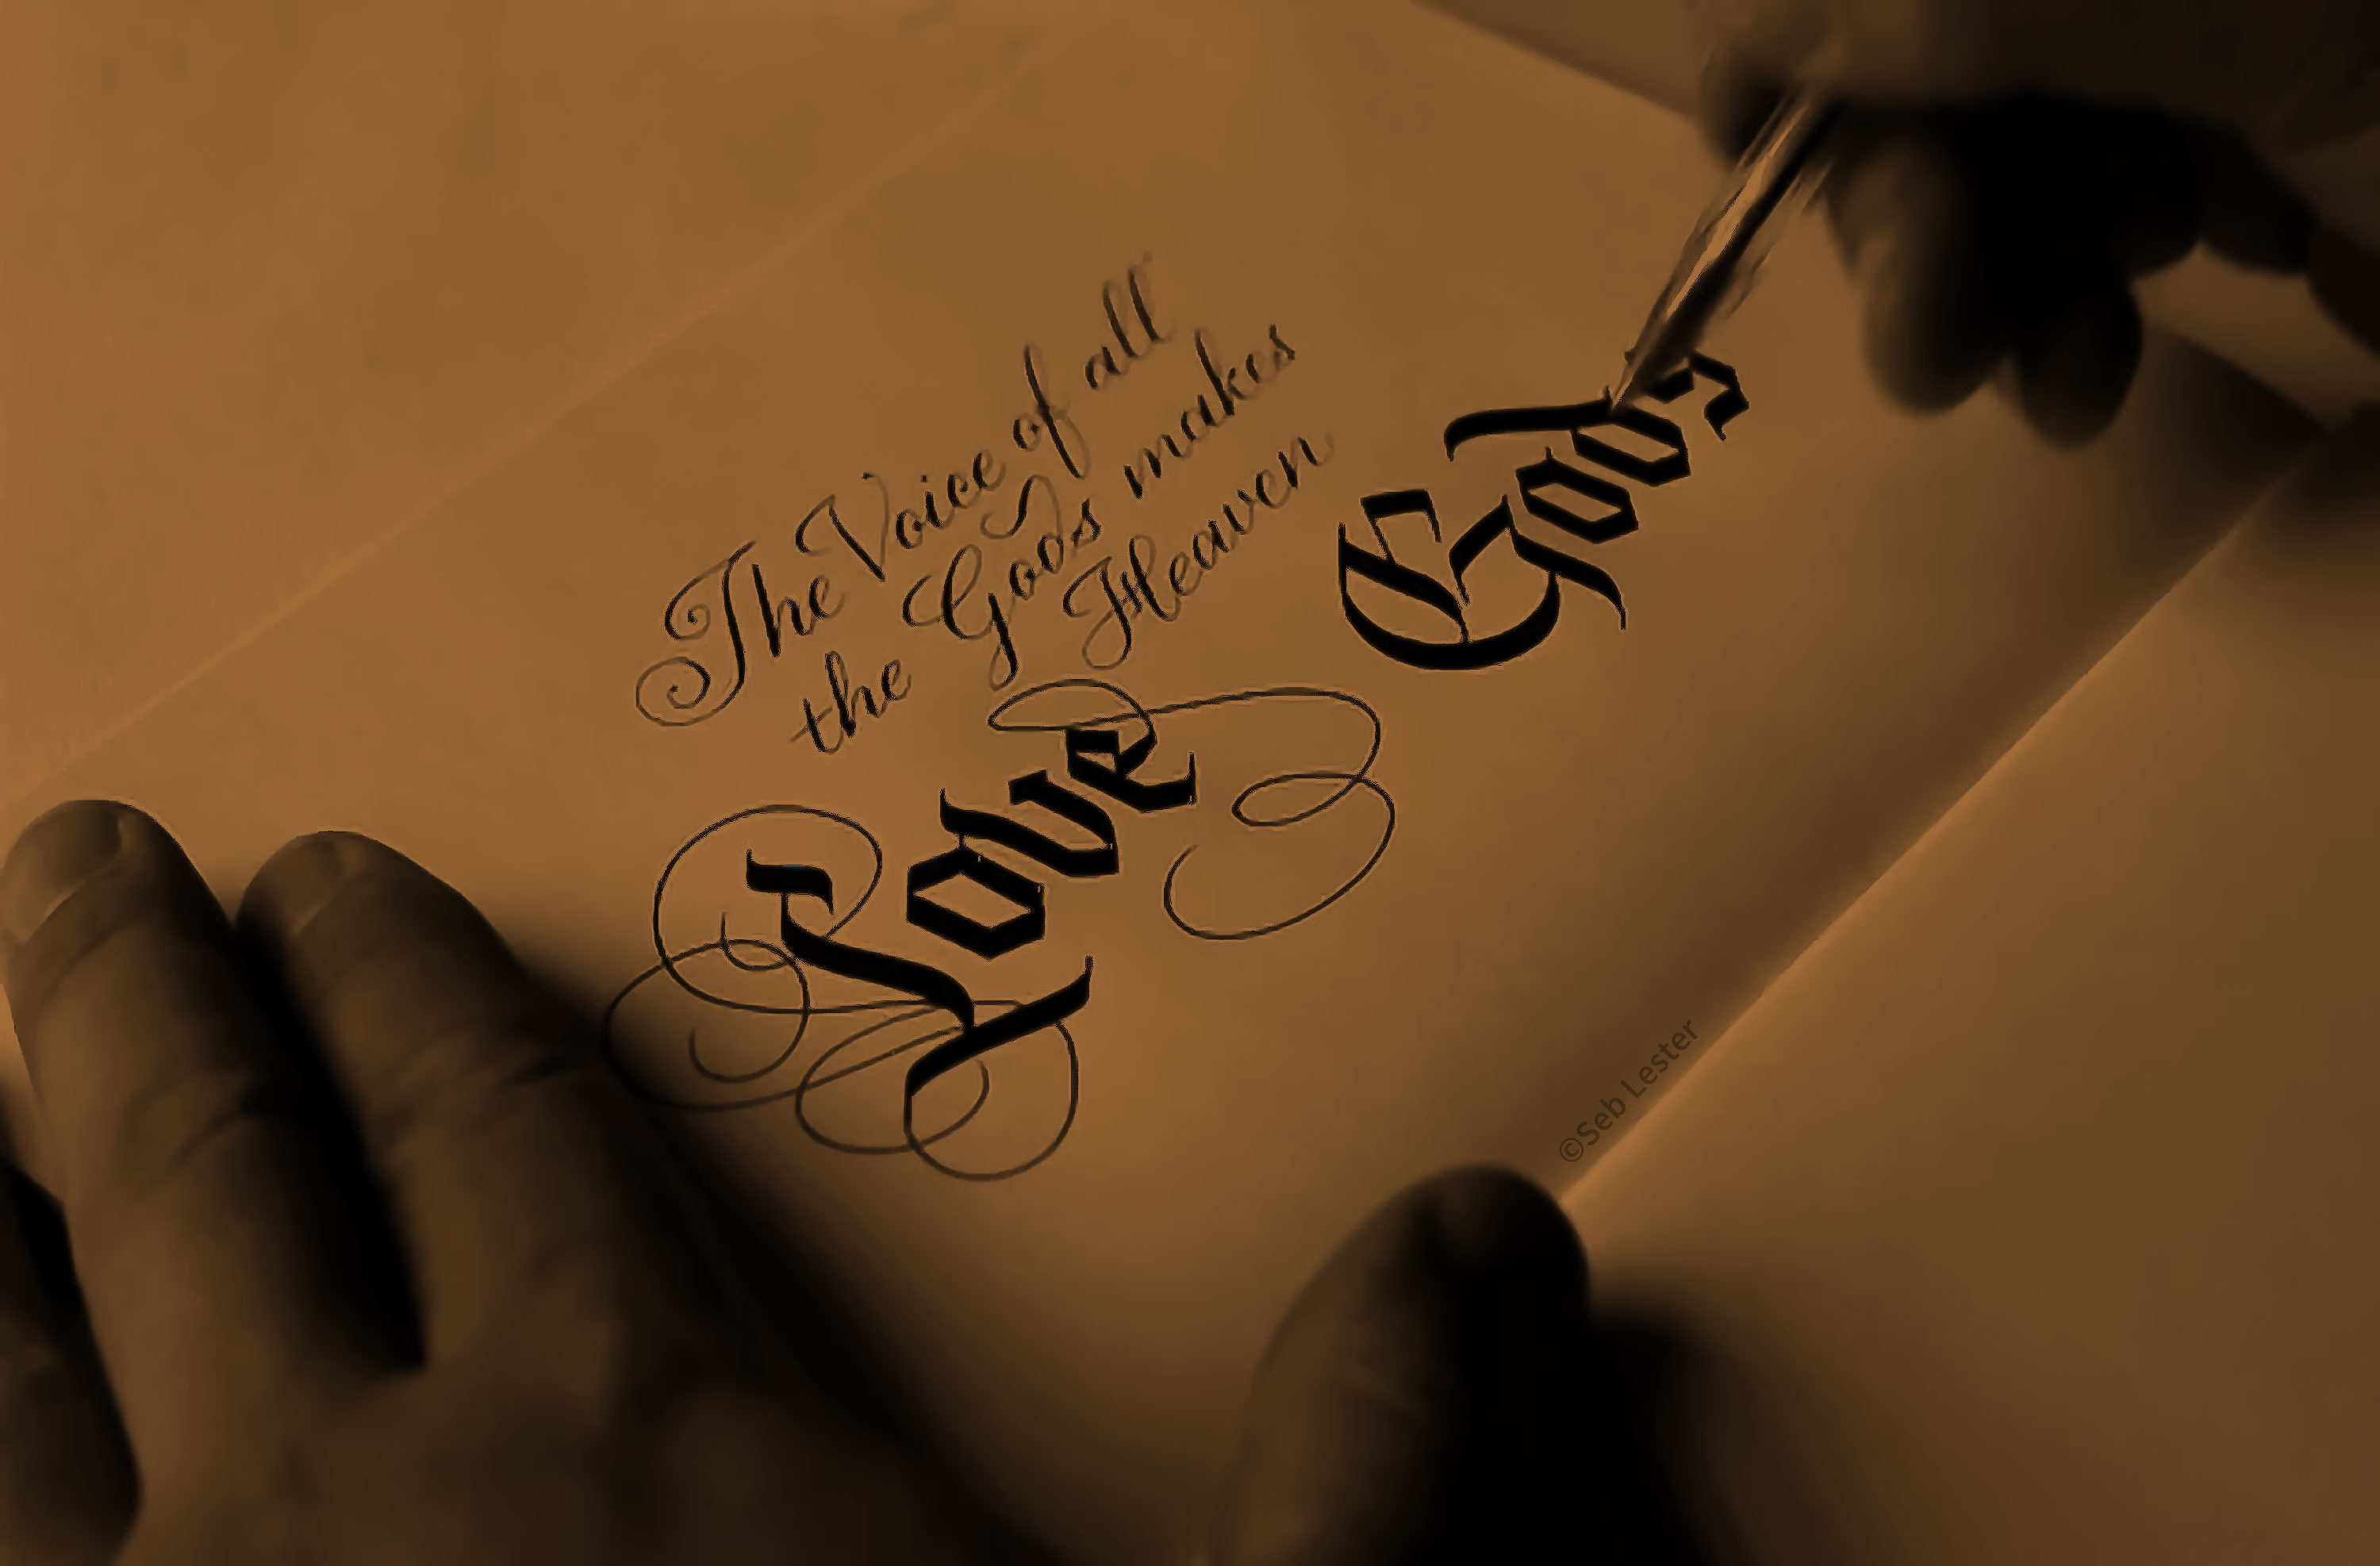 The Voice of all
the Gods makes
Heaven
Love Gods
©Seb Lester